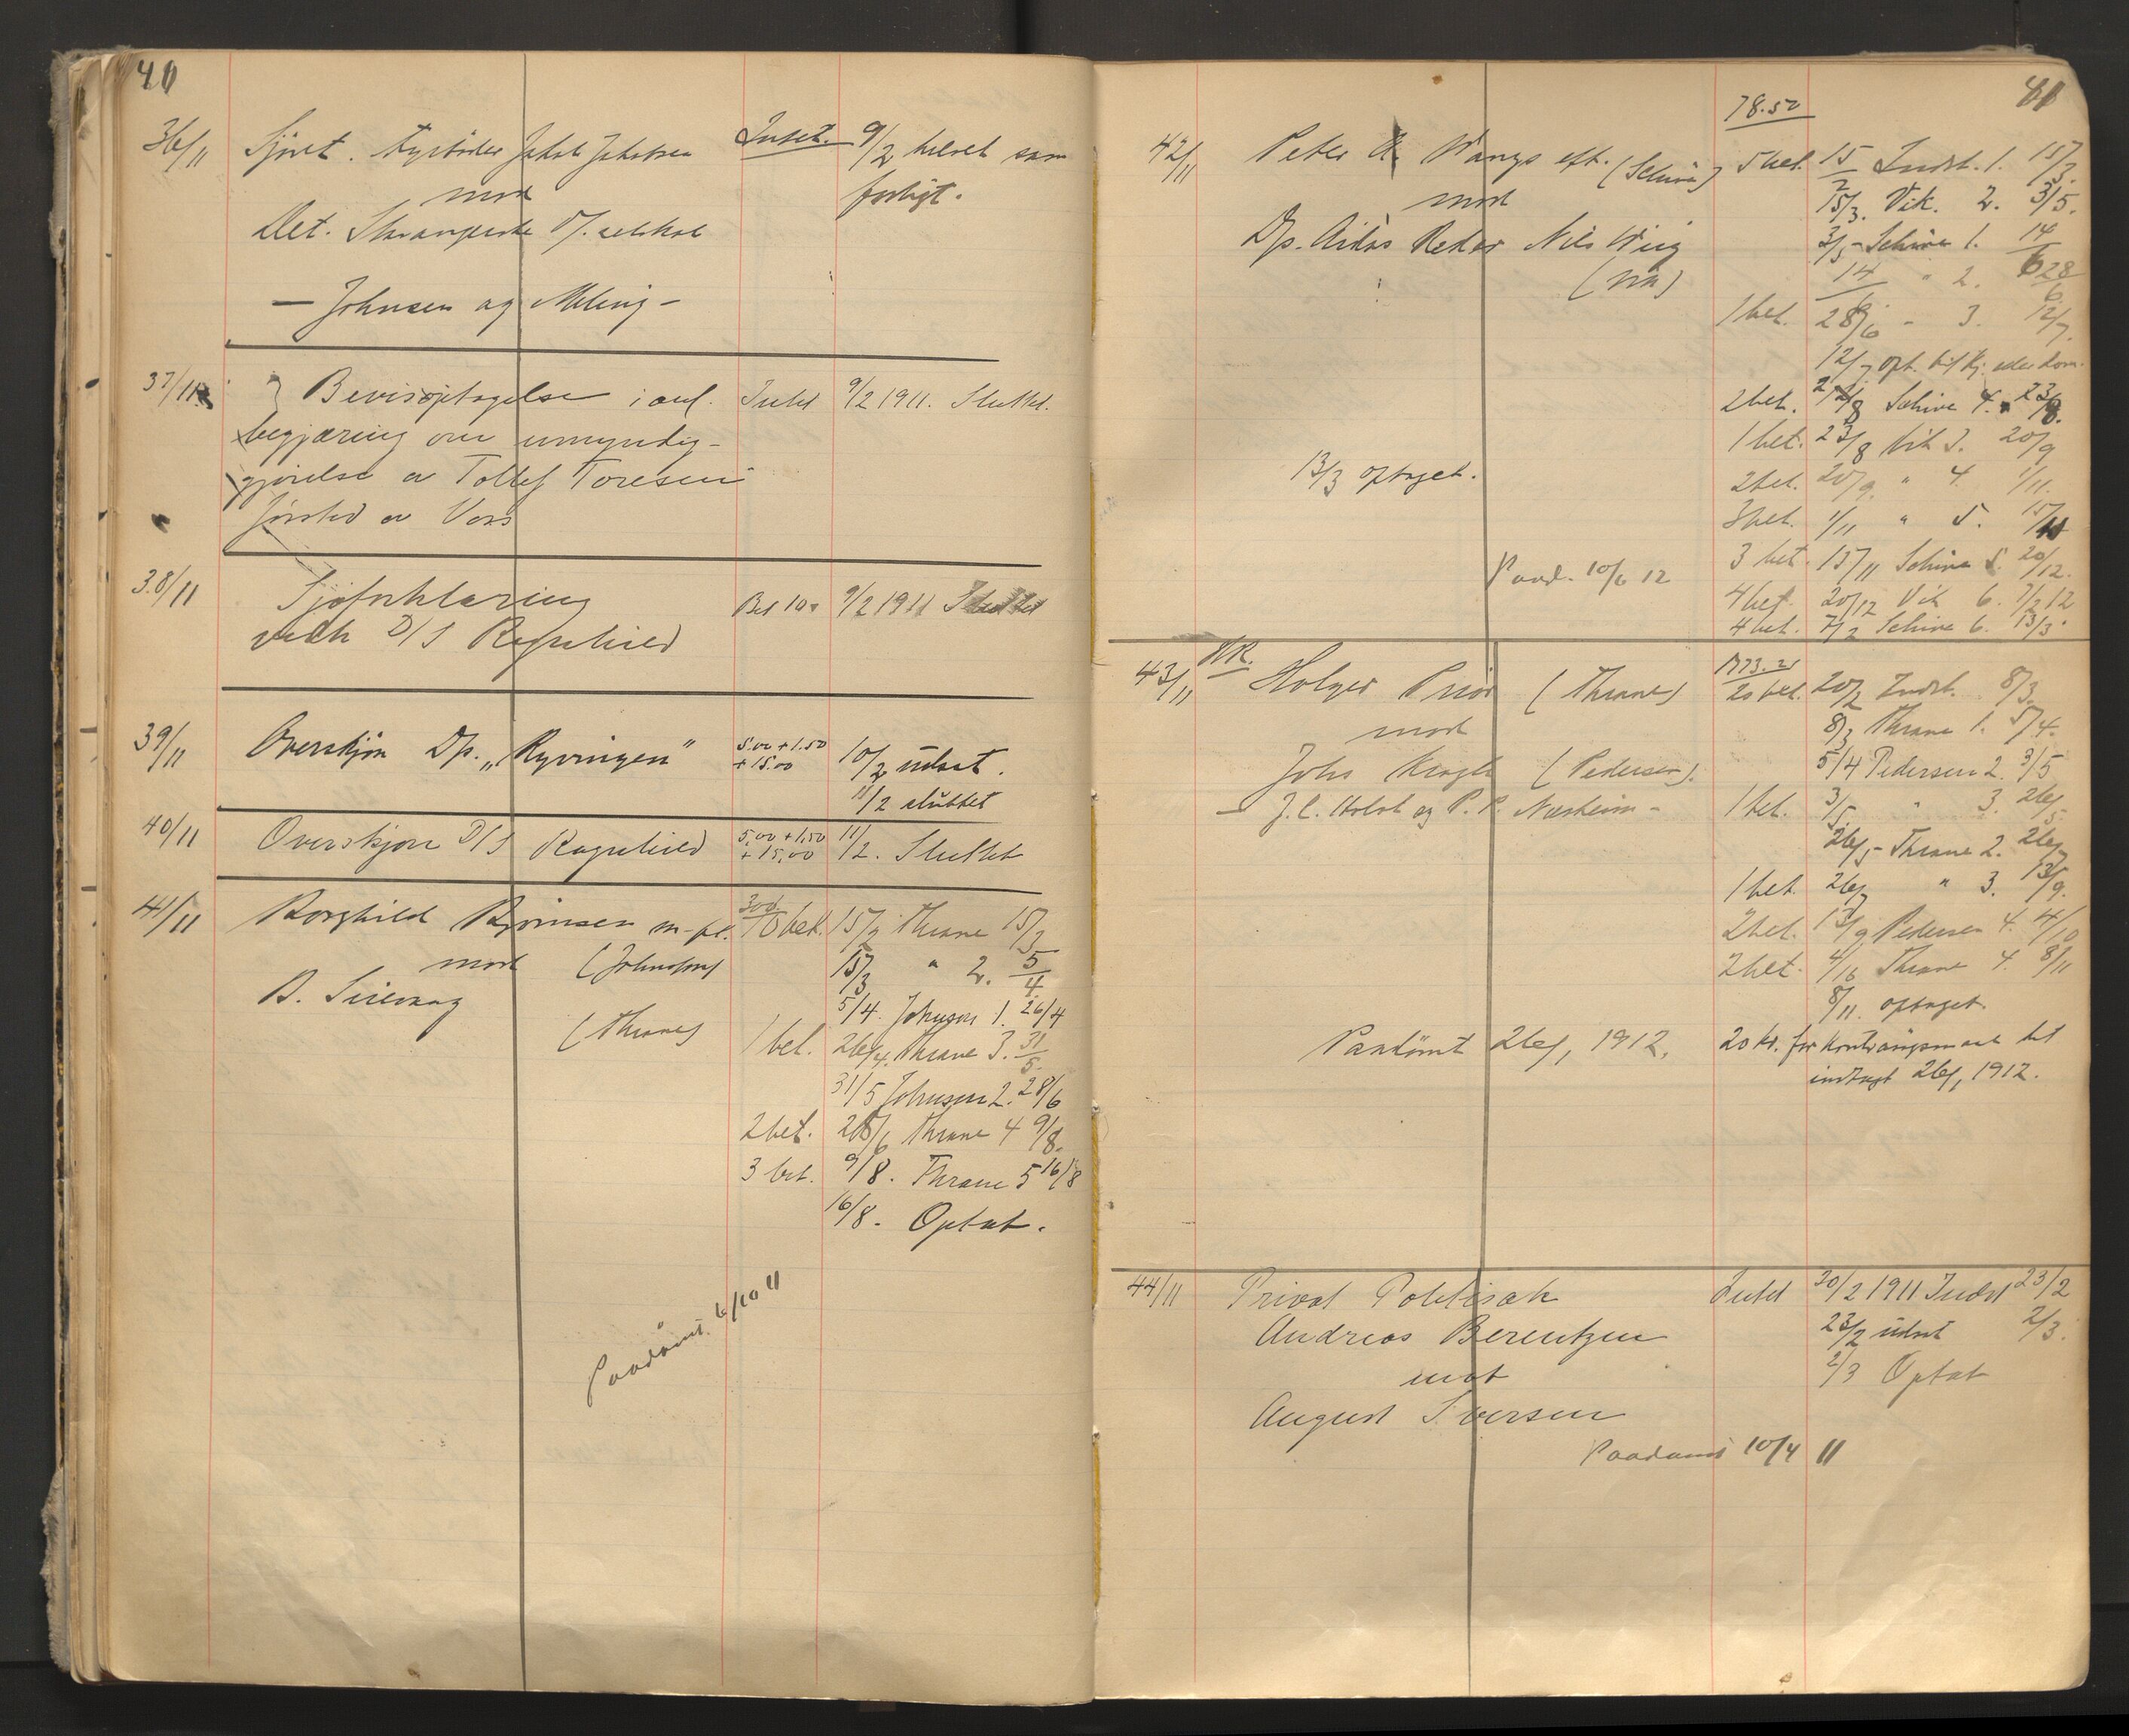 40
36/11 Sjøret. Fyrbøder Jakob Jakobsen Indst. 9/2 hævet som
mod forligt.
Det. Stavangerske D/. selskab
— Johnsen og Meling —
37/11 Bevisoptagelse i anl. Indst 9/2 1911. Sluttet.
begjæring om umyndig-
gjørelse av Tollef Toresen
av Voss
38/11 Sjøforklaring Bet 10. 9/2 1911 Sluttet
vedk D/S Ragnhild
39/11 Overskjøn Dp. „Ryvingen" 5.00 + 1.50 + 15.00 10/2 udsat.
11/2 sluttet
40/11 Overskjøn D/S Ragnhild 5,00 + 1,50 + 15,00 11/2. Sluttet
41/11 Borghild Bjørnsen m-fl. 10 bet. 15/2 Thrane 15/3
mod (Johnsen) 15/3 " 2. 5/4
B. Sirevaag 5/4 Johnsen 1. 26/4
(Thrane) 1 bet. 26/4. Thrane 3. 31/5
31/5 Johnsen 2. 28/6
2 bet. 28/6 Thrane 4 9/8.
3 bet. 9/8. Thrane 5 16/8
16/8. Optat.
Paadømt. 6/10 11
41
78.50
42/11 Peter Wangs eft. (Schive) 5 bet. 15/2 Indst. 1. 15/3.
mod 15/3. Vik. 2. 3/5.
Dp. Aidas Reder Nils Wiig 3/5 - Schive 1. 14/6
(Vik) 14/6 " 2. 28/6.
1 bet. 28/6 - 3. 12/7.
12/7 opt. til kj. eller kom.
2 bet. Schive 4. 23/8.
1 bet. 23/8 Vik 3. 20/9
13/3 optaget. 2 bet. 20/9. " 4. 1/11.
3 bet. 1/11 " 5. 15/11
3 bet. 15/11 Schive 5. 20/12.
Paad. 10/6 12 4 bet. 20/12 Vik 6. 7/2 12
4 bet. 7/2 Schive 6. 13/3.
43/11 HR. Holger Prior (Thrane) 20 bet. 20/2 Indst. 8/3.
mod 8/3 Thrane 1. 5/4.
Johs Kragh (Pedersen). 5/4 Pedersen 2. 3/5
— J. C. Holst og P. P. Næsheim - 1 bet. 3/5. " 3. 26/5.
26/5 - Thrane 2. 26/7
1 bet. 26/7 " 3. 13/9.
2 bet. 13/9 Pedersen 4. 4/10
2 bet. 4/10 Thrane 4. 8/11
8/11. optaget.
Paadømt 26/1 1912. 20 kr. for kontrasøgsmaal bet
indtagt 26/1 1912.
44/11 Privat Politisak Indst 20/2 1911 Indst 23/2
Andreas Berentzen 23/2 udsat 2/3.
mot 2/3 Optat
August Iversen
Paadømt 10/4 11